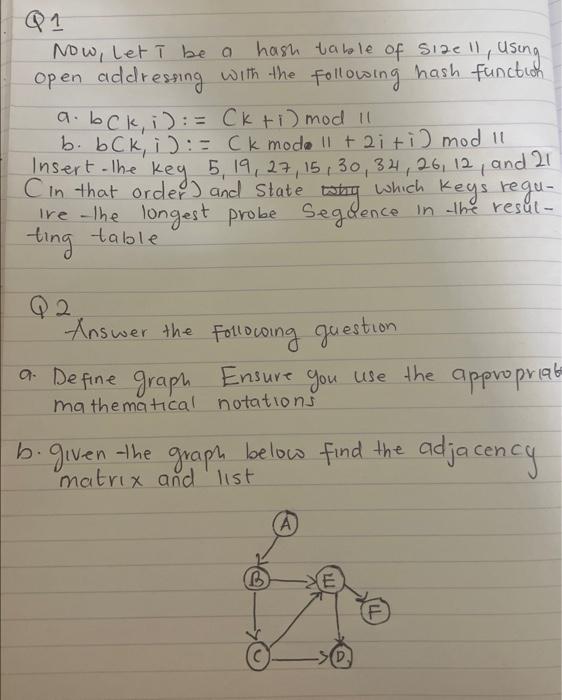 Q1
Now, Let T be a hash table of size 11, using
open addressing with the following hash function
a. b(k,i) := (k+i) mod 11
b. b(k,i) := (k mod 11 + 2i+i) mod 11
Insert the key 5, 19, 27, 15, 30, 34, 26, 12, and 21
(in that order) and State which keys requ-
ire the longest probe Seqdence in the resul-
ting table
Q2
Answer the following question
a. Define graph Ensure you use the appropriat
mathematical notations
b. given the graph below find the adjacency
matrix and list
A
B E
F
C D